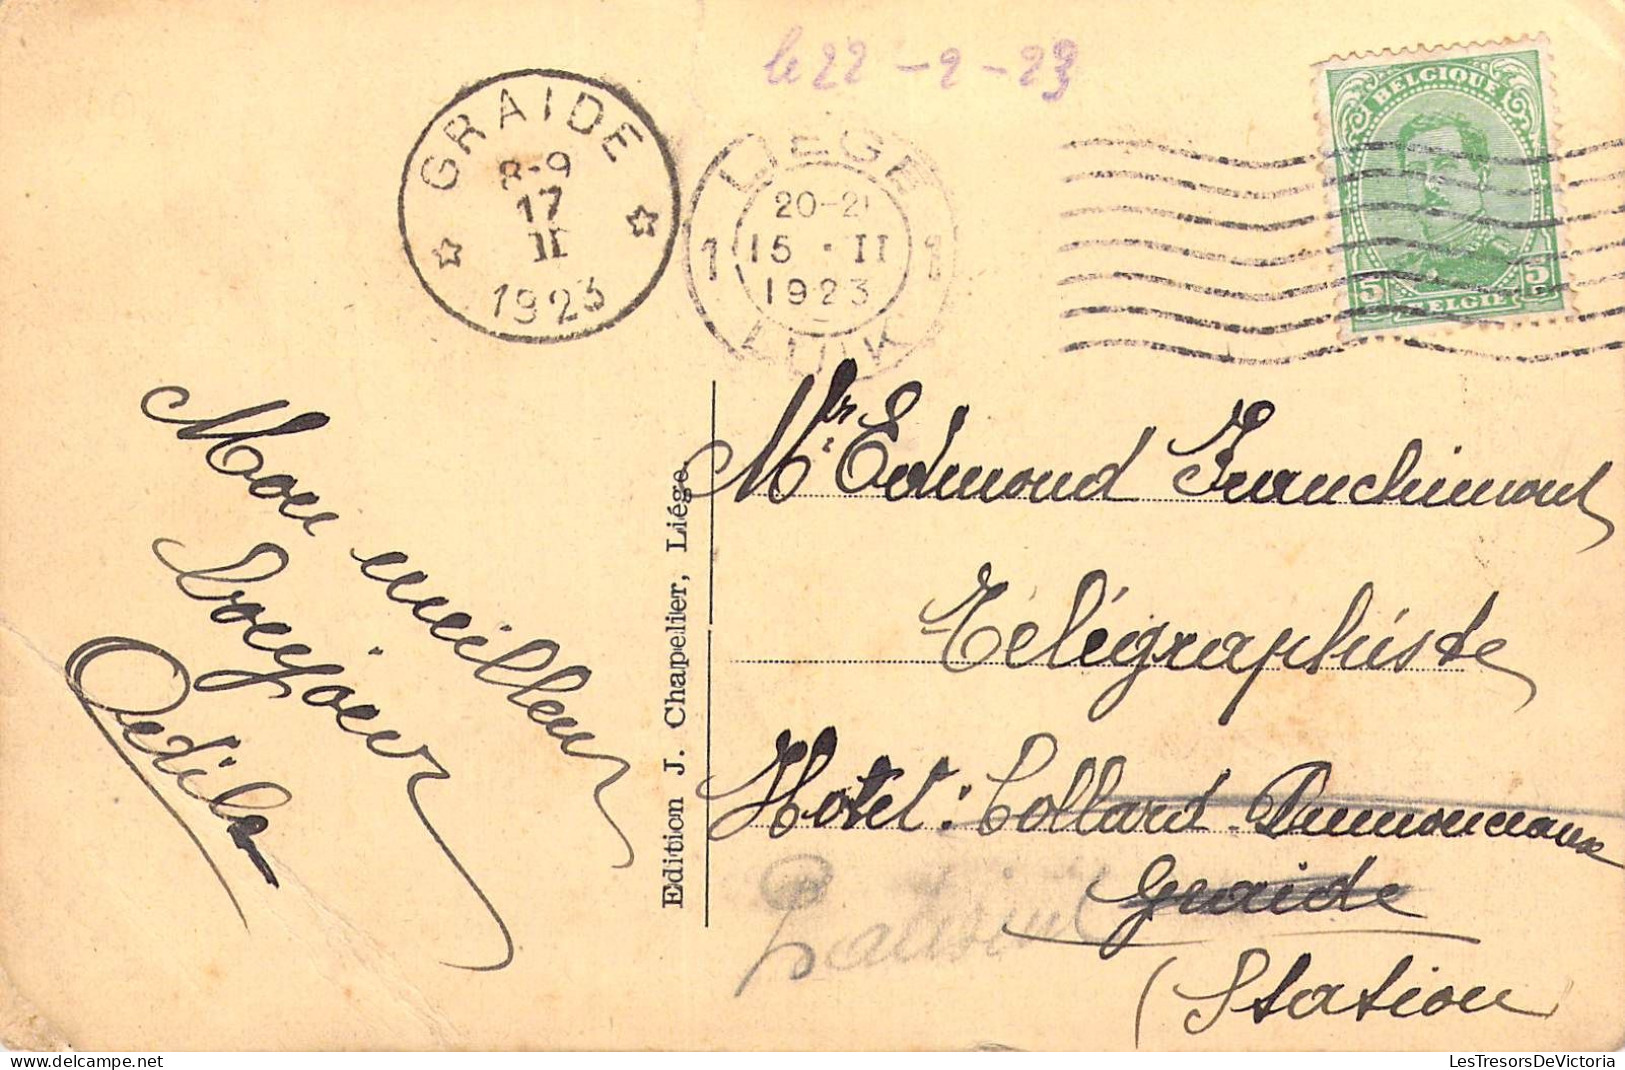 le 22-2-23
GRAIDE
8-9
17
II
1923
LIEGE
20-21
15 · II
1923
1 1
LUIK
BELGIQUE
5 5
BELGIË
Mon meilleur
bonjour
Odila
Edition J. Chapelier, Liége
Mr Edmond Franchimont
Télégraphiste
Hotel: Collard-Dumonceaux
Graide
(Station
LesTresorsDeVictoria